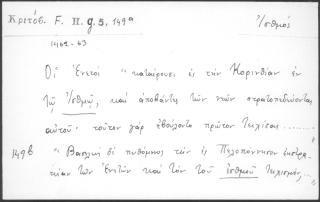 Κριτόβ. F. II. g. 5. 149ª Ἰσθμός
1462-63
Οἱ Ἐνετοί "καταίρουσι ἐς τὴν Κορινθίαν ἐν
τῷ Ἰσθμῷ, καὶ ἀποβάντες τῶν νεῶν στρατοπεδεύονται
αὐτοῦ· τοῦτον γὰρ ἐβούλοντο πρῶτον τειχίσαι.......
149b "Βασιλεὺς δὲ πυθόμενος τὴν ἐς Πελοπόννησον ἐκστρα-
τείαν τῶν Ἐνετῶν καὶ τὸν τοῦ ἰσθμοῦ τειχισμόν,...